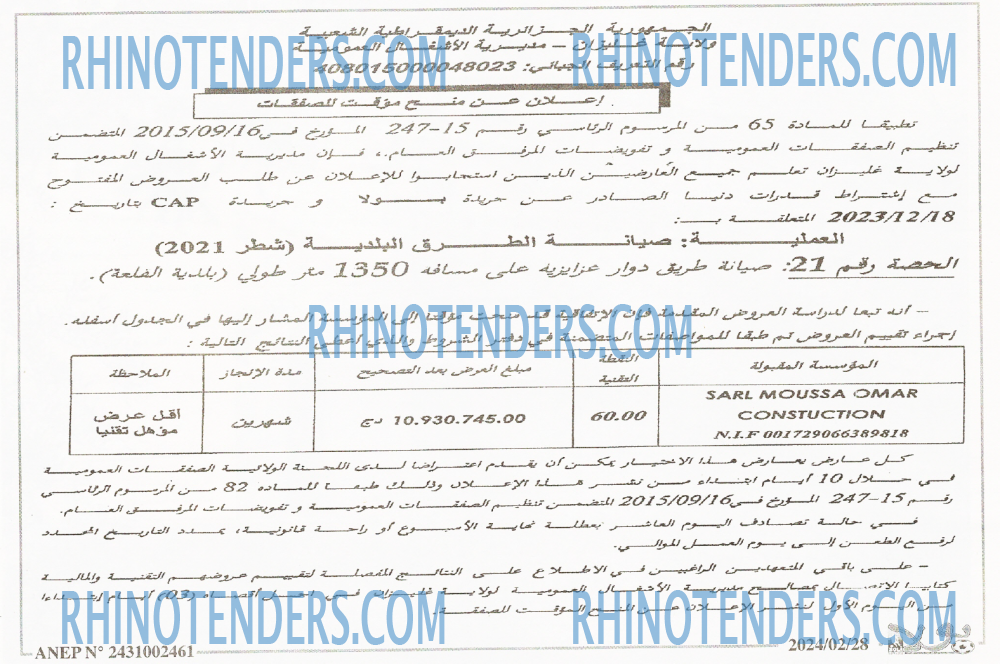 الجمهورية الجزائرية الديمقراطية الشعبية
ولاية غليزان – مديرية الأشغال العمومية
رقم التعريف الجبائي: 408015000048023
RHINOTENDERS.COM RHINOTENDERS.COM
إعلان عن منح مؤقت للصفقات
تطبيقا للمادة 65 من المرسوم الرئاسي رقم 15-247 المؤرخ في 2015/09/16 المتضمن
تنظيم الصفقات العمومية و تفويضات المرفق العام.، فإن مديرية الأشغال العمومية
لولاية غليزان تعلم جميع العارضين الذين استجابوا للإعلان عن طلب العروض المفتوح
مع إشتراط قدرات دنيا الصادر عن جريدة بولا و جريدة CAP بتاريخ :
2023/12/18 المتعلقة بـ:
العملية: صيانة الطرق البلدية (شطر 2021)
الحصة رقم 21: صيانة طريق دوار عزايزيه على مسافه 1350 متر طولي (بلدية القلعة).
– أنه تبعا لدراسة العروض المقدمة فإن الإتفاقية قد منحت مؤقتا إلى المؤسسة المشار إليها في الجدول أسفله.
RHINOTENDERS.COM
إجراء تقييم العروض تم طبقا للمواصفات المتضمنة في دفتر الشروط والذي أعطى النتائج التالية :
المؤسسة المقبولة النقطة التقنية مبلغ العرض بعد التصحيح مدة الإنجاز الملاحظة
SARL MOUSSA OMAR
CONSTUCTION
N.I.F 001729066389818
60.00 10.930.745.00 دج شهرين أقل عرض
مؤهل تقنيا
كل عارض يعارض هذا الاختيار يمكن أن يقدم اعتراضا لدى اللجنة الولائية الصفقات العمومية
في خلال 10 أيام ابتداء من نشر هذا الإعلان وذلك طبقا للماده 82 من المرسوم الرئاسي
رقم 15-247 المؤرخ في 2015/09/16 المتضمن تنظيم الصفقات العمومية و تفويضات المرفق العام.
في حالة تصادف اليوم العاشر بعطلة نهاية الأسبوع أو راحة قانونية، يمدد التاريخ المحدد
لرفع الطعن إلى يوم العمل الموالي.
– على باقي المتعهدين الراغبين في الاطلاع على النتائج المفصلة لتقييم عروضهم التقنية والمالية
كتابيا الاتصال بمصالح مديرية الأشغال العمومية لولاية غليزان في أجل أقصاه (03) أيام إبتداءا
من اليوم الأول لنشر الإعلان عن المنح المؤقت للصفقة.
RHINOTENDERS.COM RHINOTENDERS.COM
ANEP N° 2431002461 2024/02/28